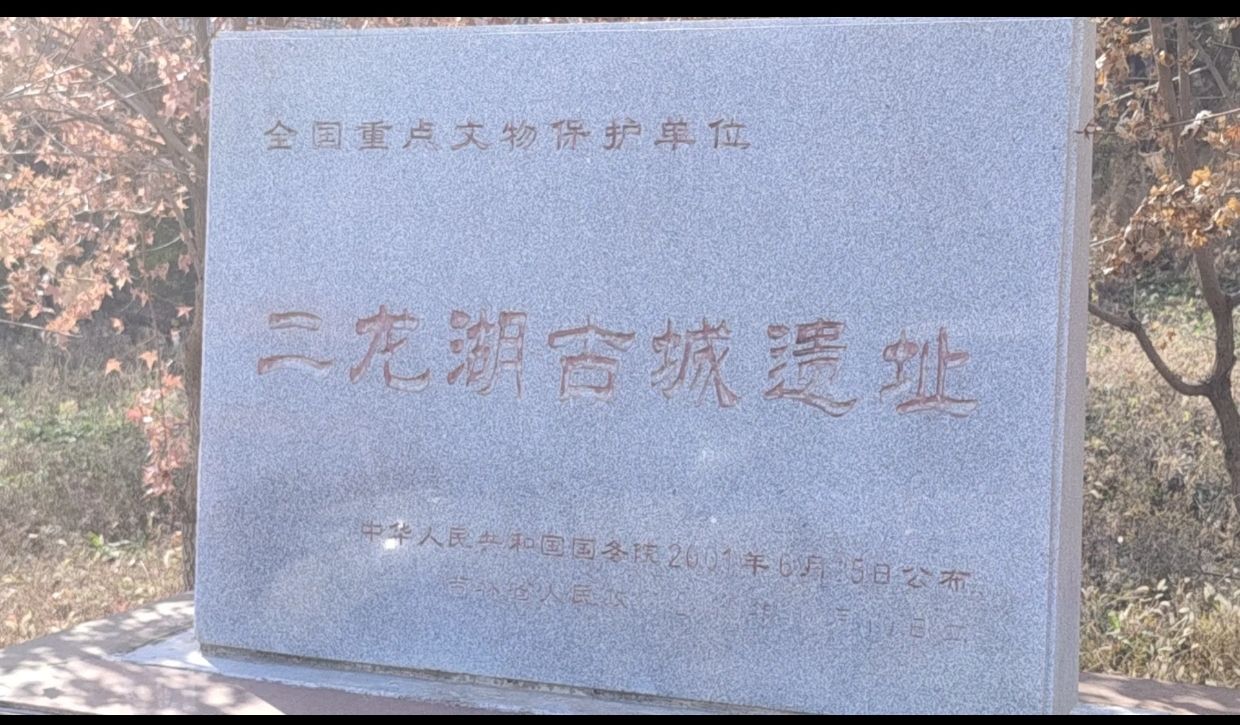 全国重点文物保护单位
二龙湖古城遗址
中华人民共和国国务院2001年6月25日公布
吉林省人民政